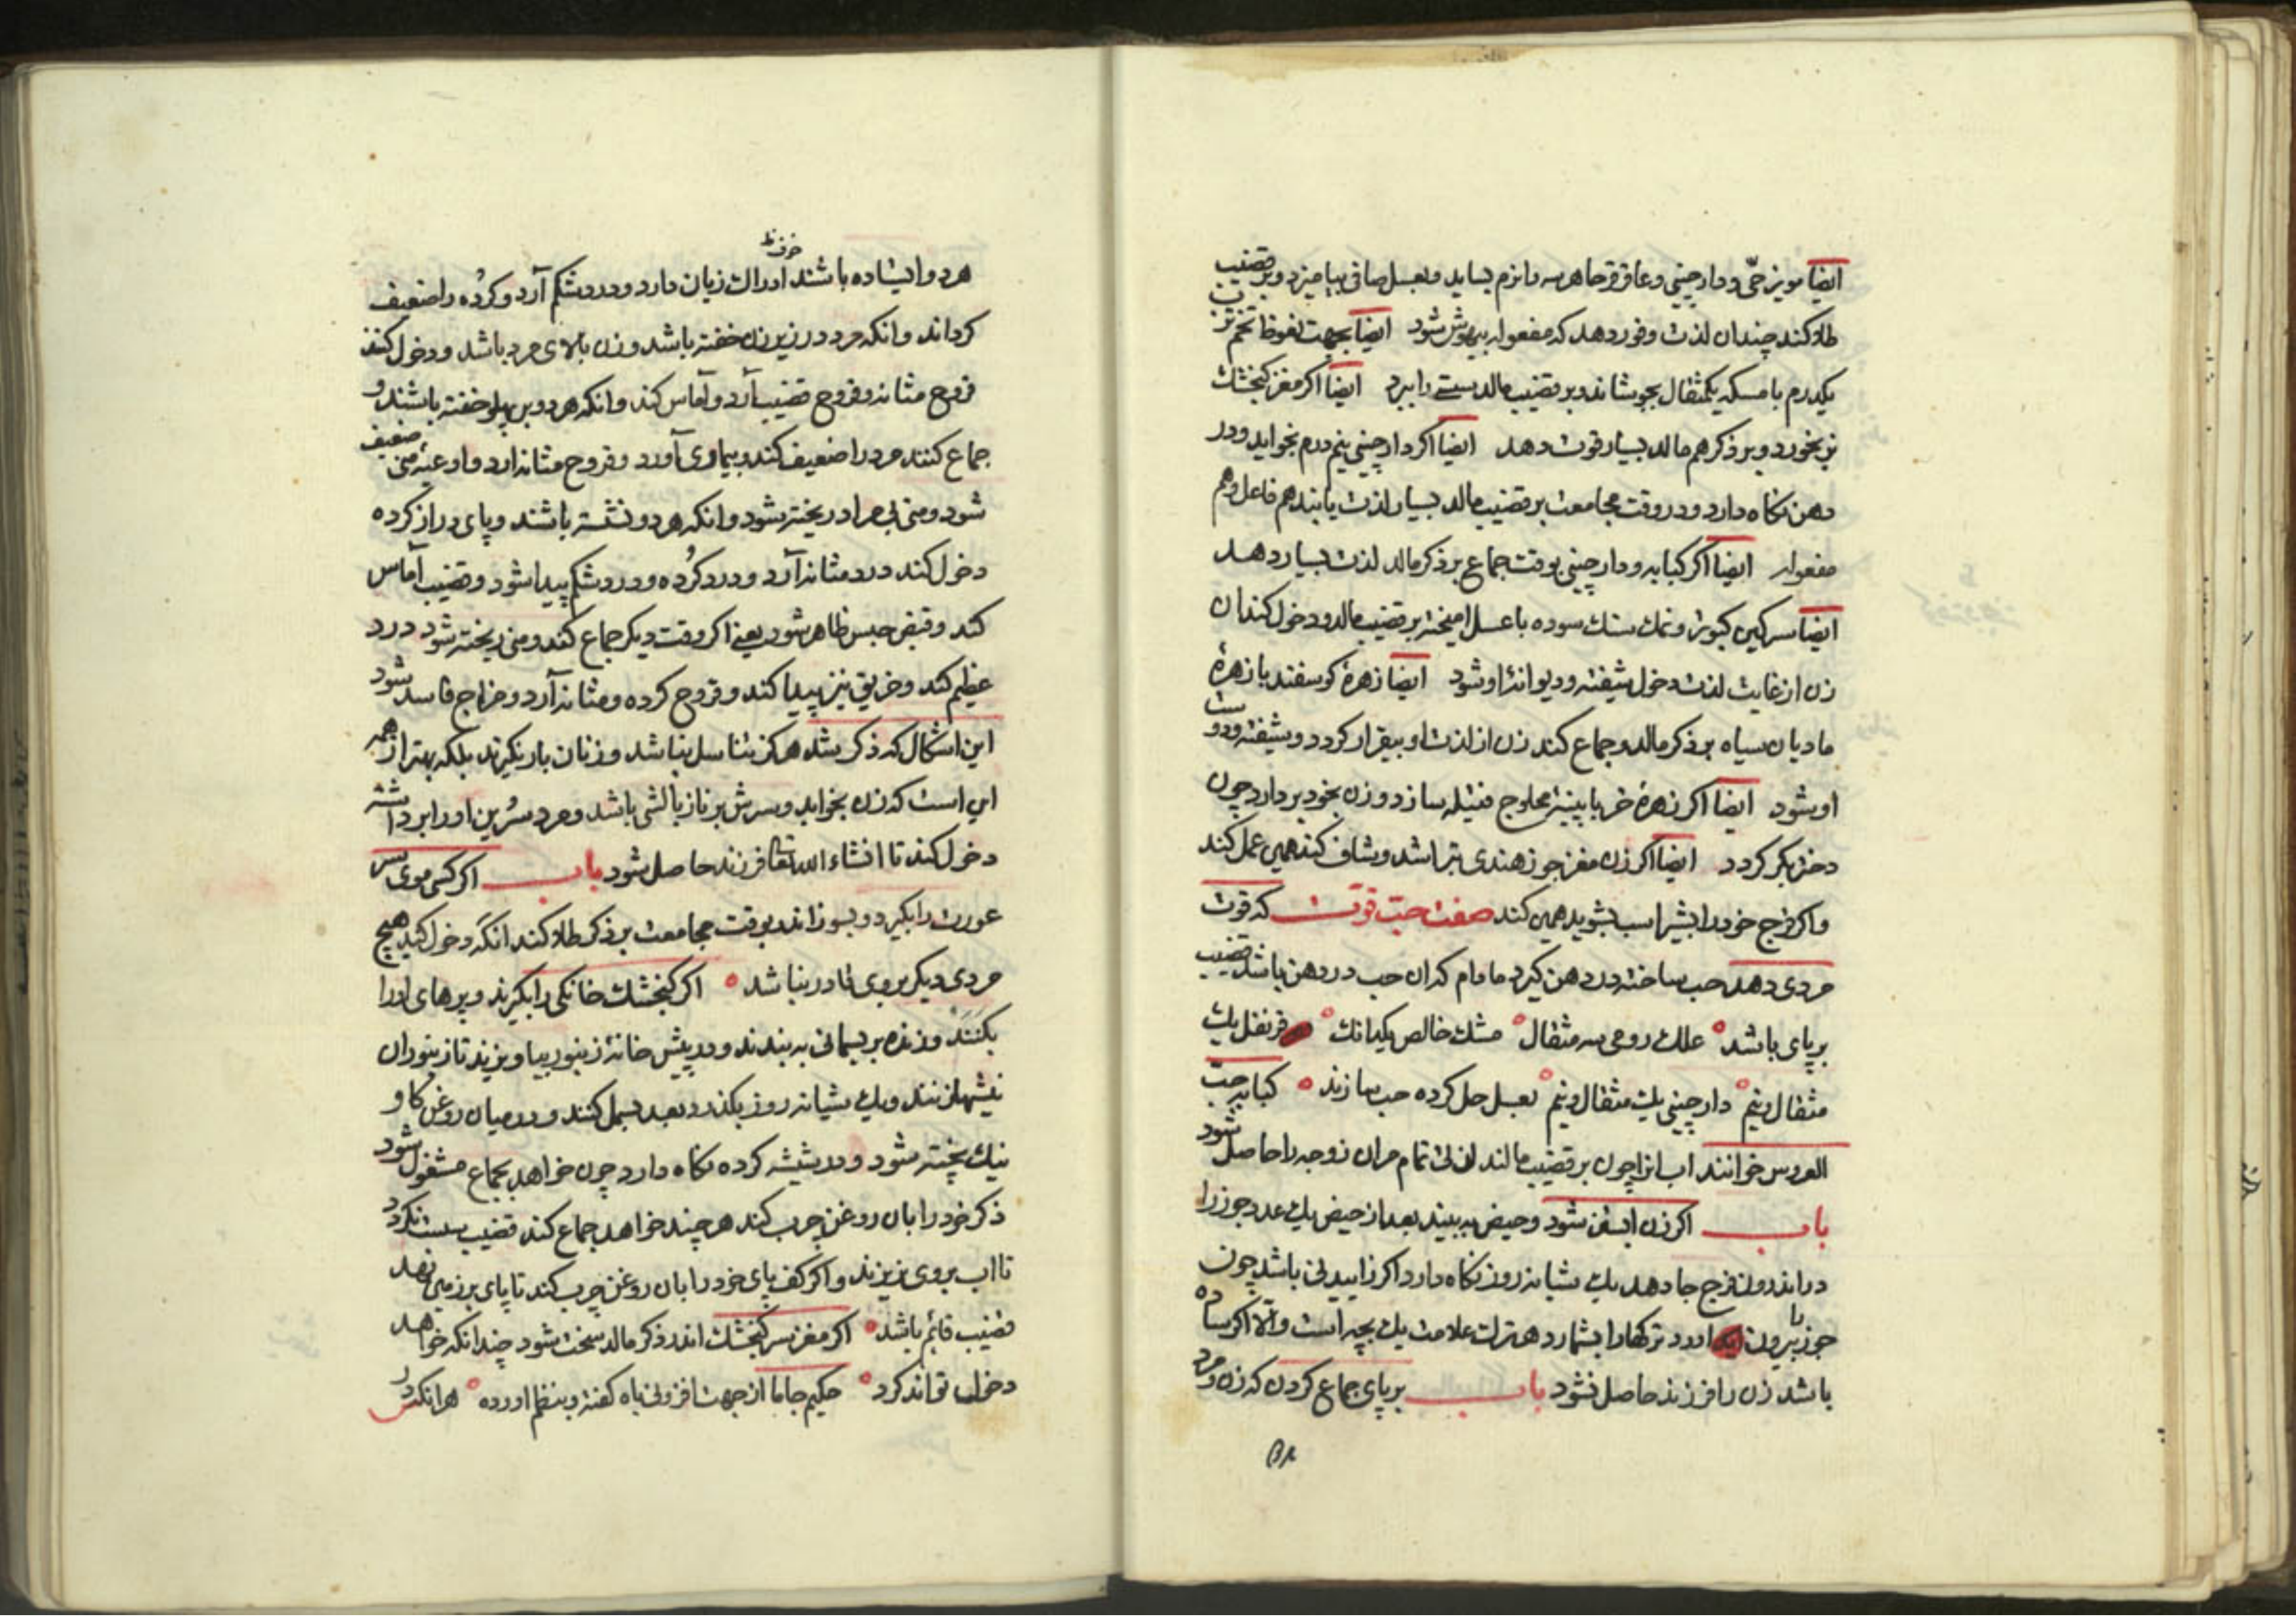 ایضا مویز حبّی و دارچینی و عاقرقرحا هرسه را نرم بساید و بعسل صافی بیامیزد و بر قضیب
طلا کند چندان لذت و فور دهد که مفعوله بیهوش شود ایضا بجهت نعوظ تخم ترب
یکدرم با مسکه یکمثقال بجوشاند و بر قضیب مالد سستی را ببرد ایضا اکر مغز کنجشک
نر بخورد و بر ذکر هم مالد بسیار قوت دهد ایضا اکر دارچینی نیم درم بخواید و در
دهن نکاه دارد و در وقت مجامعت بر قضیب مالد بسیار لذت یابند هم فاعل و هم
مفعوله ایضا اکر کبابه و دارچینی بوقت جماع بر ذکر مالد لذت بسیار دهد
ایضا سرکین کبوتر و نمک سنک سوده با عسل امیخته بر قضیب مالد و دخول کند ان
زن از غایت لذت دخول شیفته و دیوانۀ او شود ایضا زهرۀ کوسفند با زهرۀ
مادیان سیاه بر ذکر مالد و جماع کند زن از لذت او بیقرار کردد و شیفته و دوست
او شود ایضا اکر زهرۀ خر با پنبۀ محلوج فتیله سازد و زن بخود بردارد چون
دختر بکر کردد ایضا اکر زن مغز جوز هندی بتراشد و شاف کند همین عمل کند
و اکر فرج خود را بشیر اسب بشوید همین کند صفت حبّ قوّت که قوت
مردی دهد حب ساخته در دهن کیرد مادام که ان حب در دهن باشد قضیب
بر پای باشد علک رومی سه مثقال مشک خالص یکدانک قرنفل یک
مثقال و نیم دارچینی یک مثقال و نیم بعسل حل کرده حب سازند کبابه حبّ
العروس خوانند اب انرا چون بر قضیب مالند لذتی تمام مران زوجه را حاصل شود
باب اکر زن ابستن شود و حیض به بیند بعد از حیض یک عدد جوز را
در اندرون فرج جا دهد یک شبانه روز نکاه دارد اکر زاییدنی باشد چون
جوز را بیرون اورد ترکها را بشمارد هر ترک علامت یک بچه است و الّا اکر ساده
باشد زن را فرزند حاصل نشود باب بر پای جماع کردن که زن و مرد
هر دو ایستاده باشند ادراک زیان دارد و درد شکم آرد و کرُده را ضعیف
کرداند و انکه مرد در زیر زن خفته باشد و زن بالای مرد باشد و دخول کنند
قروح مثانه و قروح قضیب آرد و آماس کند و انکه هر دو بر پهلو خفته باشند و
جماع کنند مرد را ضعیف کند و بیماری آورد و قروح مثانه ارد و اوعیۀ منی ضعیف
شود و منی بی مراد ریخته شود و انکه هر دو نشسته باشند و پای دراز کرده
دخول کند درد مثانه آرد و درد کرُده و درد شکم پیدا شود و قضیب آماس
کند و قبض حبس ظاهر شود یعنی اکر وقت دیکر جماع کند و منی ریخته شود درد
عظیم کند و حریق نیز پیدا کند و قروح کرده و مثانه آرد و مزاج فاسد شود
این اشکال که ذکر شد هرکز تناسل نباشد و زنان بار نکیرند بلکه بهتر از همه
این است که زن بخوابد و سرش بر ناز بالشی باشد و مرد سُرین او را برداشته
دخول کند تا انشاء الله تعالی فرزند حاصل شود باب اکر کسی موی سر
عورت را بکیرد و بسوزاند بوقت مجامعت بر ذکر طلا کند انکه دخول کند هیچ
مردی دیکر بر وی قادر نباشد اکر کنجشک خانکی را بکیرند و پرهای او را
بکنند و زنده بریسمانی به بندند و در پیش خانۀ زنبور بیاویزند تا زنبوران
نیشها زنند و یک شبانه روز بکذرد بعد بسمل کنند و در میان روغن کاو
نیک پخته شود و در شیشه کرده نکاه دارد چون خواهد بجماع مشغول شود
ذکر خود را بان روغن چرب کند هر چند خواهد جماع کند قضیب سست نکردد
تا اب بر وی نریزند و اکر کف پای خود را بان روغن چرب کند تا پای بر زمین نهد
قضیب قائم باشد اکر مغز سر کنجشک اندر ذکر مالد سخت شود چندانکه خواهد
دخول تواند کرد حکیم جاماا از جهت افزونی باه کفته و بنظم اورده هر انکه در